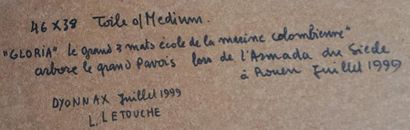 46 x 38 Toile s/ Medium.
"GLORIA" le grand 3 mats école de la marine colombienne"
arbore le grand Pavois lors de l'Armada du Siècle
à Rouen Juillet 1999
DYONNAX Juillet 1999
L. LETOUCHE